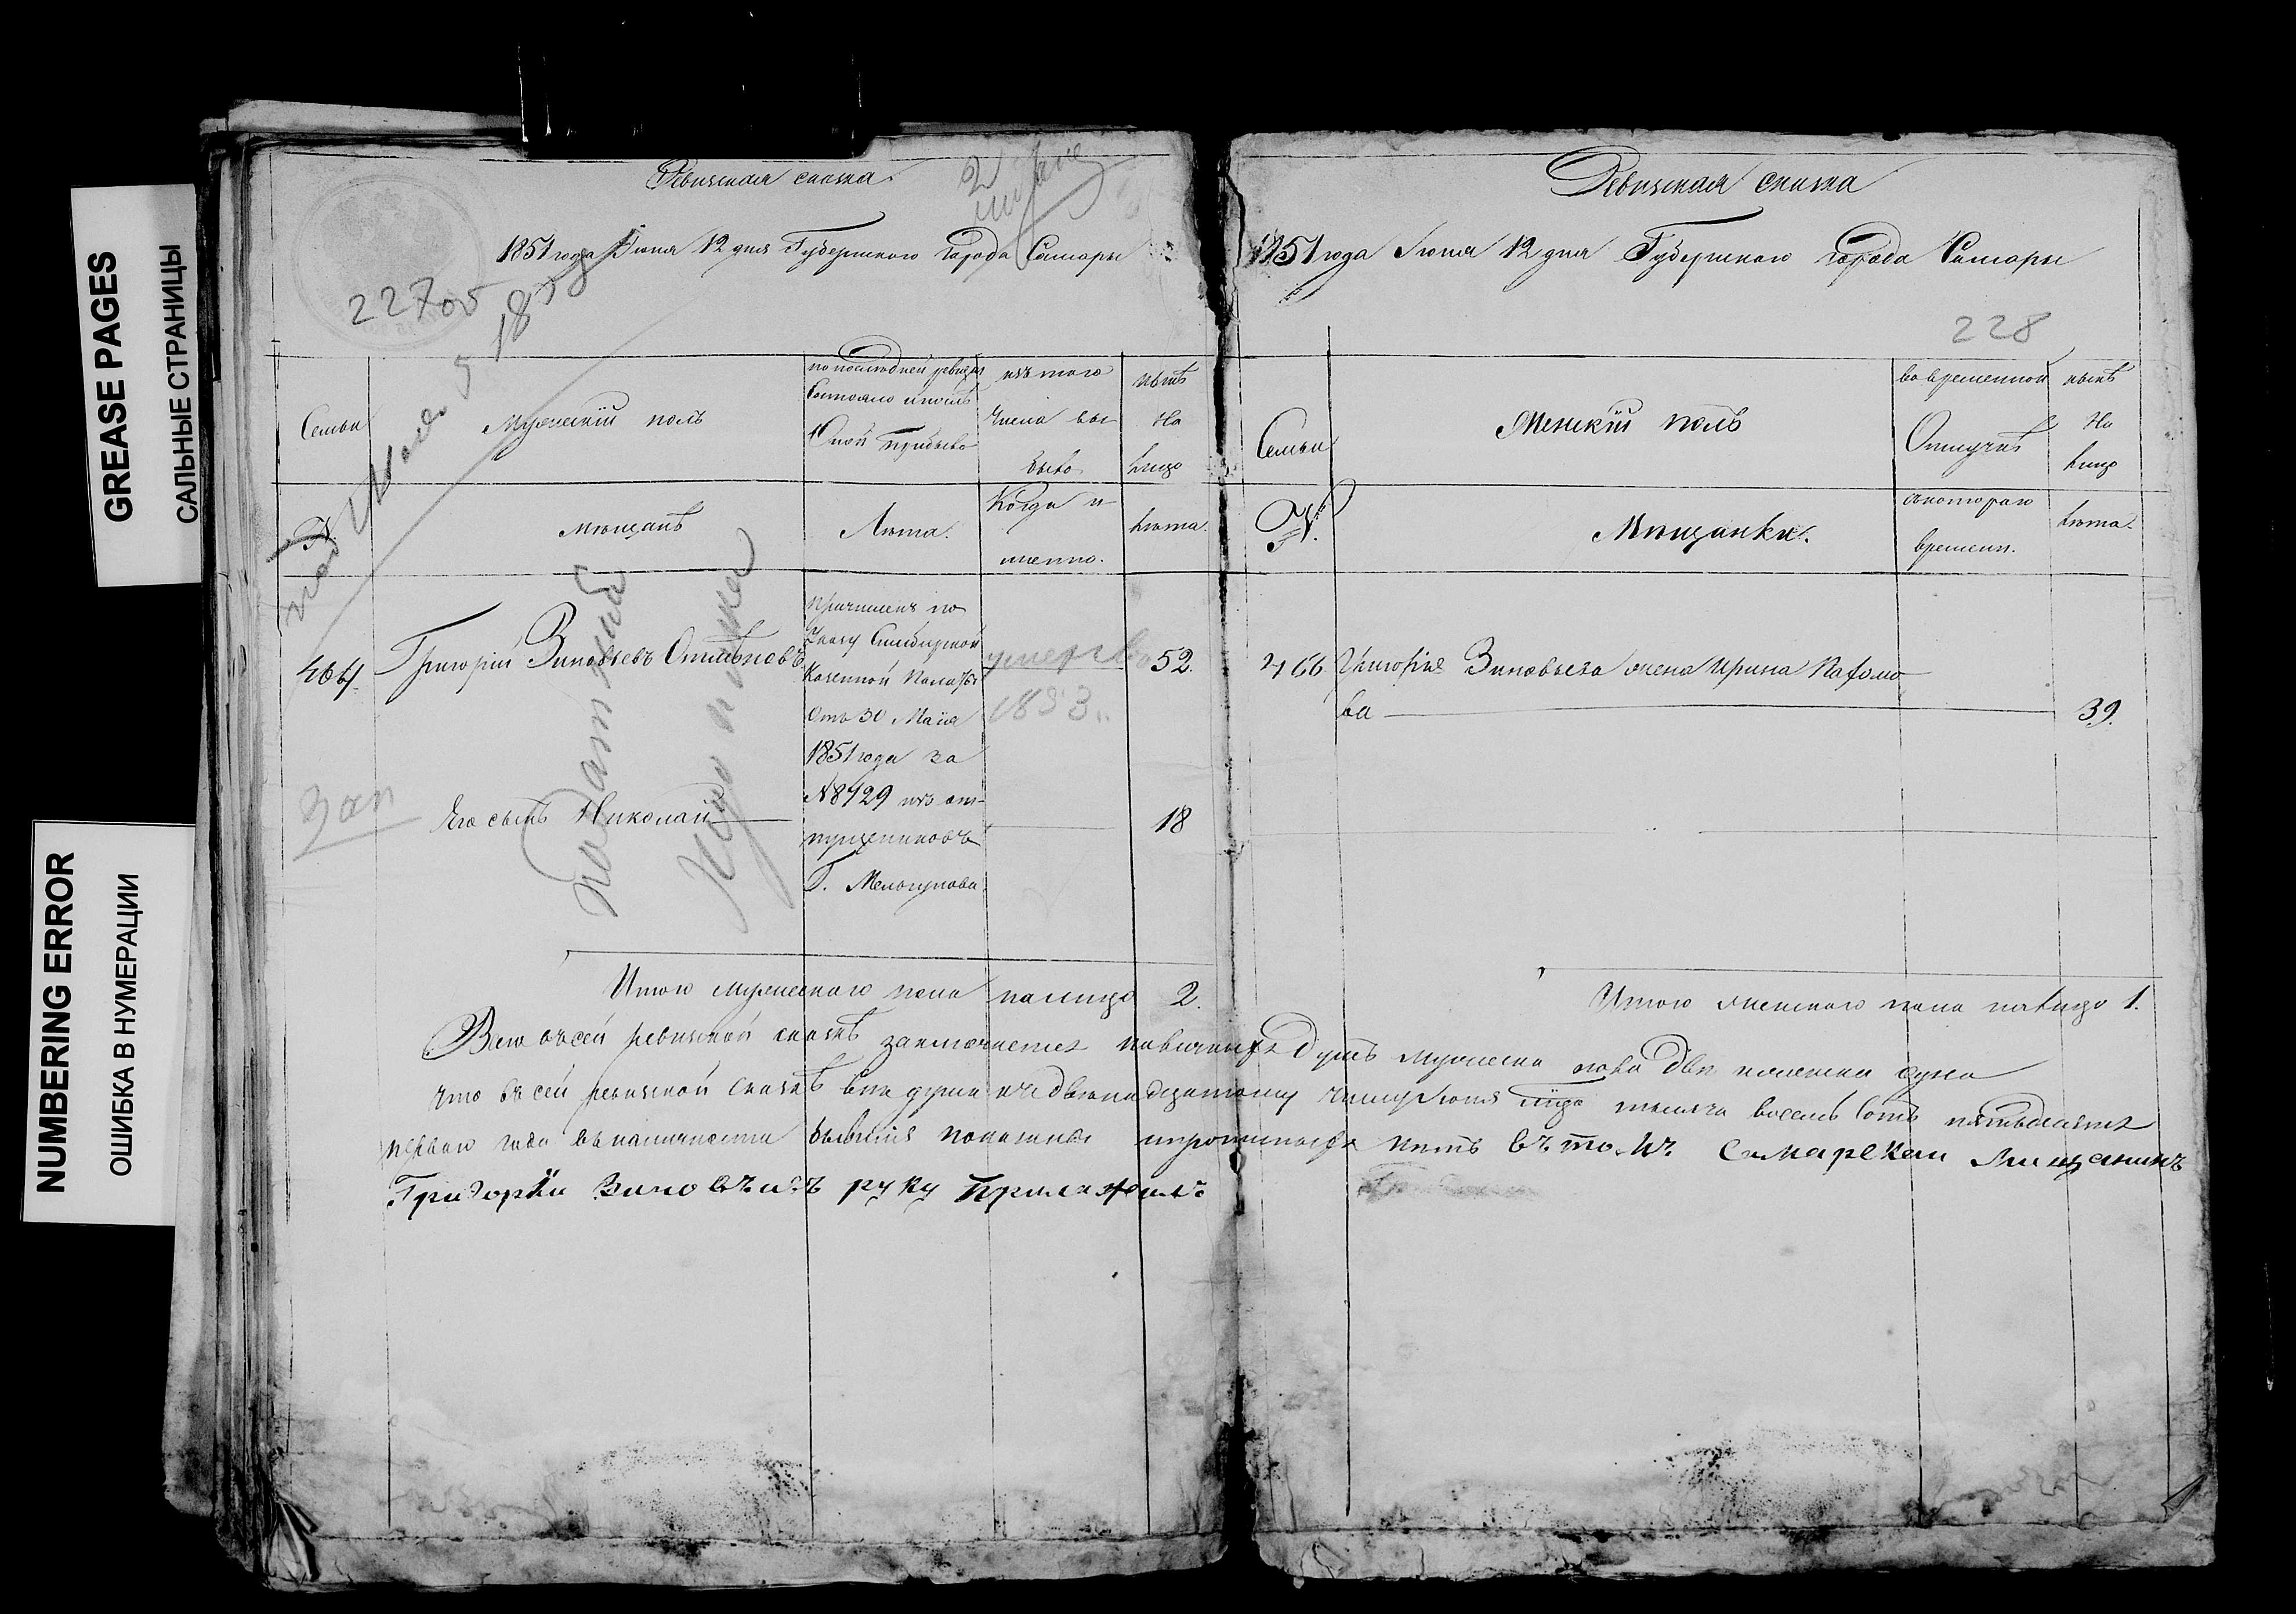 GREASE PAGES
САЛЬНЫЕ СТРАНИЦЫ
NUMBERING ERROR
ОШИБКА В НУМЕРАЦИИ
Ревизская сказка
1851 года Июня 12 дня Губернского города Самары
227об
Семьи
Мужеский полъ
по последней ревизiи
Состояло и послѣ
Оной прибыло
изъ того
числа вы
было
нынѣ
На
лицо
№.
мѣщанъ
Лѣта.
Когда и
менно.
лѣта.
464.
Григорій Зиновьевъ
Причисленъ по
Указу Симбирской
Казенной Палаты
Отъ 30 Маiя
1851 года за
№8429 изъ от-
пущенниковъ
Г. Мелогунова
умеръ
1853
52.
Его сынъ Николай
18
Итого мужескаго пола налицо 2.
Ревизская сказка
1851 года Июня 12 дня Губернского города Самары
228
Семьи
Женскiй полъ
во временной
Отлучкѣ
нынѣ
На
лицо
№.
Мѣщанки.
съкотораго
времени.
лѣта.
466
Григорiя Зиновьева жена Ирина Пафомо
ва
39.
Итого женскаго пола налицо 1.
Всего въсей ревизской сказкѣ заключается наличныхъ душъ мужеска пола двѣ и женска одна
что въ сей ревизской сказкѣ всѣ души
перваго года въ наличности бывшiя показаны и прописныхъ нѣтъ въ томъ Самарскай Мищанинъ
Григорiй Зиновъивъ руку Приложилъ